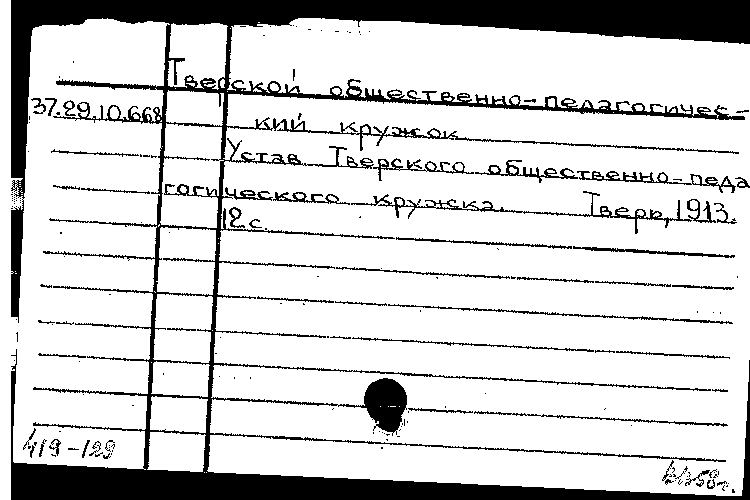 Тверской общественно-педагогичес-
37.29.10.668
кий кружок
Устав Тверского общественно-педа
гогического кружка. Тверь, 1913.
12 с.
419-129